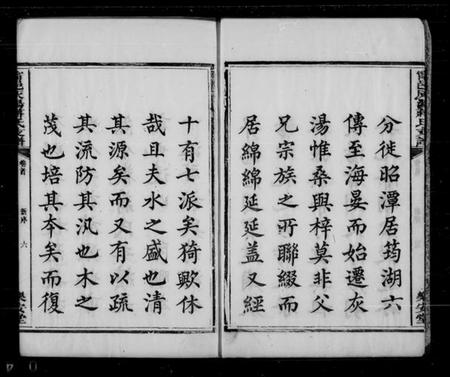 分徙昭潭居筠湖六
傳至海晏而始遷灰
湯惟桑與梓莫非父
兄宗族之所聯綴而
居綿綿延延蓋又經
十有七派矣猗歟休
哉且夫水之盛也清
其源矣而又有以疏
其流防其汎也木之
茂也培其本矣而復
卷首
六